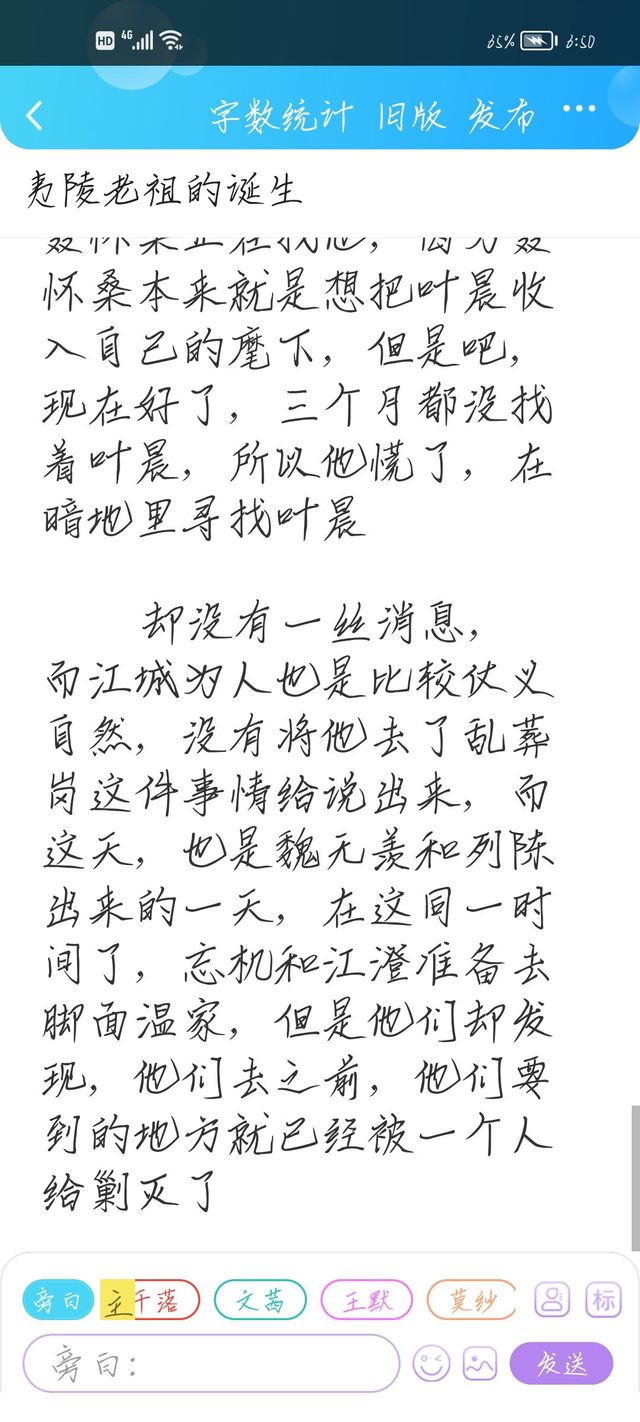 HD 4G 65% 6:50
字数统计 旧版 发布 ···
夷陵老祖的诞生
聂怀桑正在找他，因为聂
怀桑本来就是想把叶晨收
入自己的麾下，但是吧，
现在好了，三个月都没找
着叶晨，所以他慌了，在
暗地里寻找叶晨
却没有一丝消息，
而江城为人也是比较仗义
自然，没有将他去了乱葬
岗这件事情给说出来，而
这天，也是魏无羡和列陈
出来的一天，在这同一时
间了，忘机和江澄准备去
脚面温家，但是他们却发
现，他们去之前，他们要
到的地方就已经被一个人
给剿灭了
旁白 主 千落 文茜 王默 莫纱 标
旁白：
发送